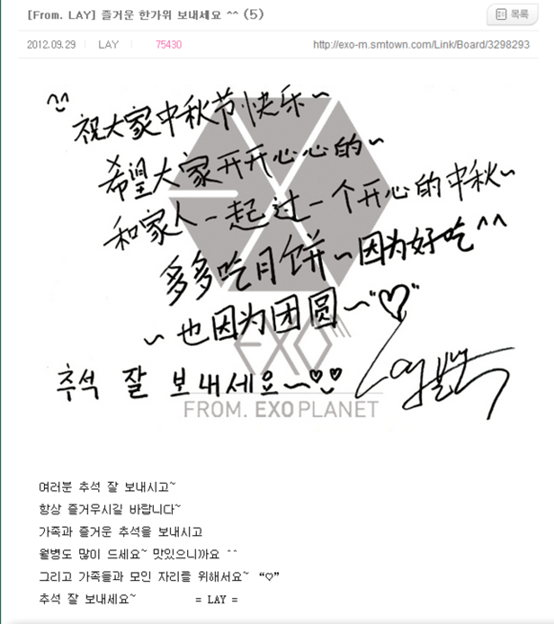 [From. LAY] 즐거운 한가위 보내세요 ^^ (5)
목록
2012.09.29 LAY 75430 http://exo-m.smtown.com/Link/Board/3298293
^^
祝大家中秋节快乐~
希望大家开开心心的~
和家人一起过一个开心的中秋~
多多吃月饼~因为好吃^^
~也因为团圆~“♡”
EXO
추석 잘 보내세요~♡♡
Lay
FROM. EXOPLANET
여러분 추석 잘 보내시고~
항상 즐거우시길 바랍니다~
가족과 즐거운 추석을 보내시고
월병도 많이 드세요~ 맛있으니까요 ^^
그리고 가족들과 모인 자리를 위해서요~ “♡”
추석 잘 보내세요~ = LAY =